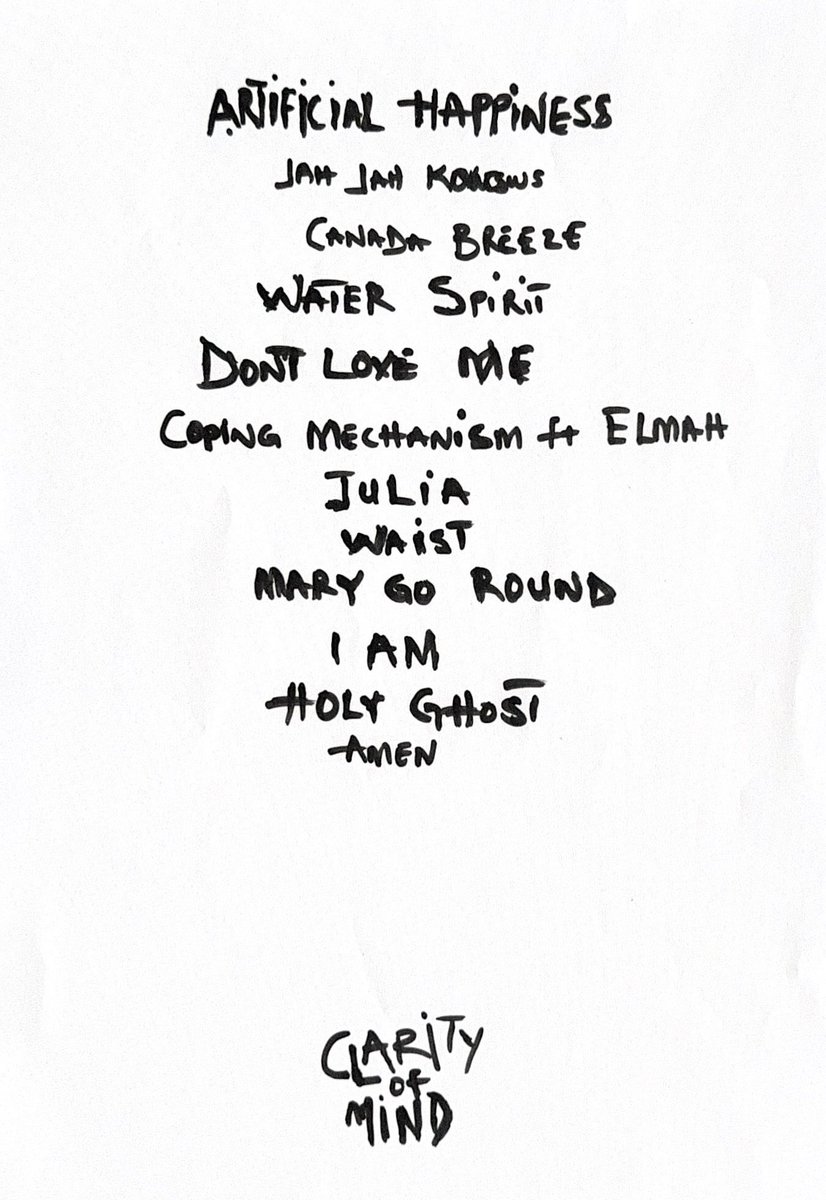 ARTIFICIAL HAPPINESS
JAH JAH KNOWS
CANADA BREEZE
WATER SPIRIT
DONT LOVE ME
COPING MECHANISM ft ELMAH
JULIA
WAIST
MARY GO ROUND
I AM
HOLY GHOST
AMEN
CLARITY
of
MIND